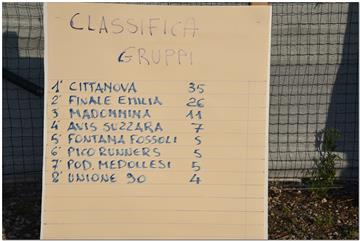 CLASSIFICA
GRUPPI
1° CITTANOVA 35
2° FINALE EMILIA 26
3 MADONNINA 11
4° AVIS SUZZARA 7
5° FONTANA FOSSOLI 5
6° PICO RUNNERS 5
7° POD. MEDOLLESI 5
8° UNIONE 90 4